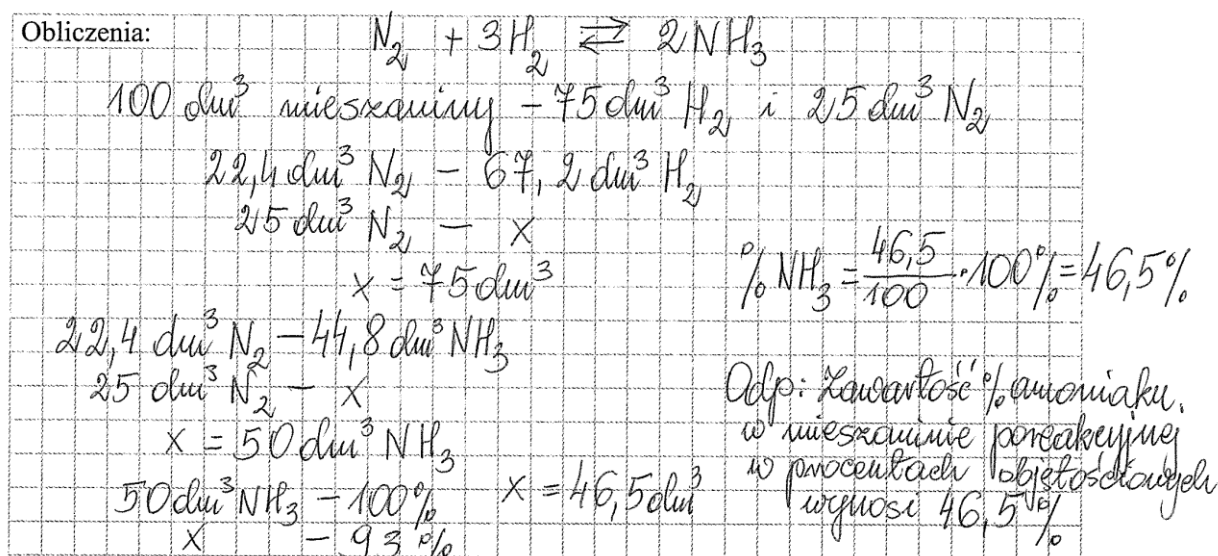 Obliczenia:
N₂ + 3H₂ ⇄ 2NH₃
100 dm³ mieszaniny - 75 dm³ H₂ i 25 dm³ N₂
22,4 dm³ N₂ - 67,2 dm³ H₂
25 dm³ N₂ - x
x = 75 dm³
22,4 dm³ N₂ - 44,8 dm³ NH₃
25 dm³ N₂ - x
x = 50 dm³ NH₃
50 dm³ NH₃ - 100%
x - 93 %
x = 46,5 dm³
% NH₃ = 46,5/100 · 100% = 46,5%
Odp: Zawartość % amoniaku.
w mieszaninie poreakcyjnej
w procentach objętościowych
wynosi 46,5 %